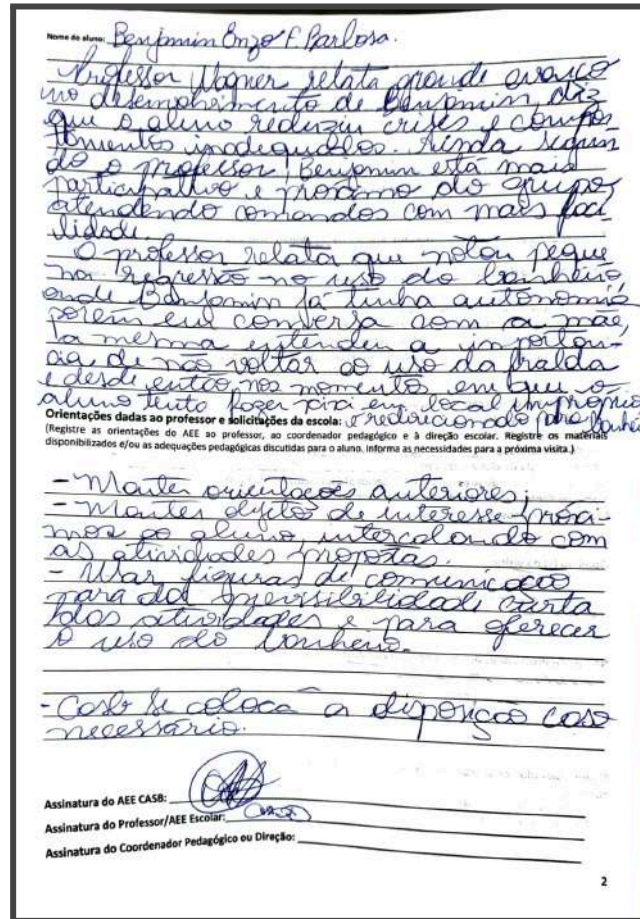 Nome do aluno: Benjamin Enzo F Barbosa.
Professor Wagner relata grande avanço
no desenvolvimento de Benjamin, diz
que o aluno reduziu crises e compor
tamentos inadequados. Ainda segun
do o professor, Benjamin está mais
participativo e próximo do grupo,
atendendo comandos com mais faci-
lidade.
O professor relata que notou peque
na regressão no uso do banheiro,
onde Benjamin já tinha autonomia
porém em conversa com a mãe,
a mesma entendeu a importân-
cia de não voltar ao uso da fralda
e desde então nos momentos em que o
aluno tenta fazer xixi em local impróprio
é redirecionado para banheiro
Orientações dadas ao professor e solicitações da escola:
(Registre as orientações do AEE ao professor, ao coordenador pedagógico e à direção escolar. Registre os materiais
disponibilizados e/ou as adequações pedagógicas discutidas para o aluno. Informa as necessidades para a próxima visita.)
- Manter orientações anteriores;
- Manter objeto de interesse próxi-
mos ao aluno, intercalando com
as atividades propostas.
- Usar figuras de comunicação
para dar previsibilidade
das atividades e para oferecer
o uso do banheiro.
- Casb se coloca a disposição caso
necessário.
Assinatura do AEE CASB:
Assinatura do Professor/AEE Escolar:
Assinatura do Coordenador Pedagógico ou Direção:
2